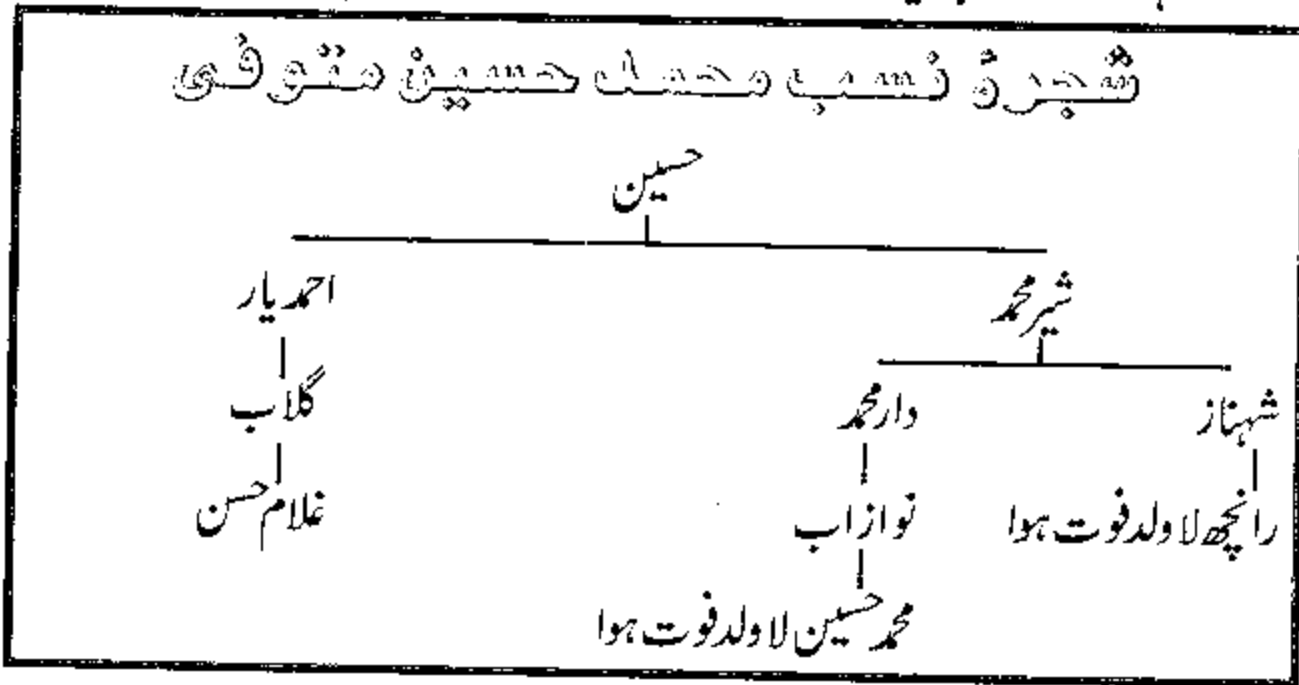 شجرۂ نسب محمد حسین متوفی
حسین
شیر محمد
احمد یار
شہناز
دار محمد
گلاب
رانچھ لا ولد فوت ہوا
نواز اب
غلام حسن
محمد حسین لا ولد فوت ہوا